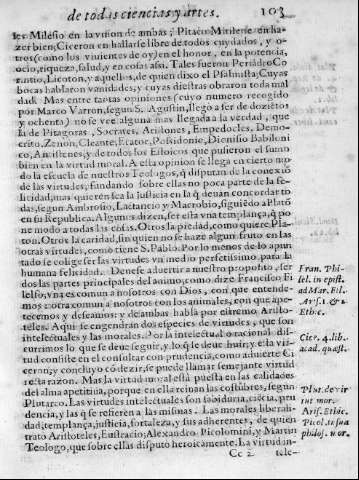 de todas ciencias y artes. 103
les Milesio en la vnion de ambas; Pitaco Mitilene en ha-
zer bien; Ciceron en hallarse libre de todos cuydados, y o-
tros (como los vinientes de oy) en el honor, en la potencia,
ocio, riqueza, salud, y en cosas assi. Tales fueron Periãdro Co
rintio, Licoton, y aquellos, de quien dixo el Psalmista, Cuyas
bocas hablaron vanidades, y cuyas diestras obraron toda mal
dad. Mas entre tantas opiniones (cuyo numero recogido
por Marco Varron, segun S. Agustin, llegò a ser de doziẽtos
y ochenta) no se vee alguna mas llegada a la verdad, que
la de Pitagoras, Socrates, Aristones, Empedocles, Demo-
crito, Zenon, Cleante, Eratoc, Possidonie, Dionisio Babiloni
co, Antistenes, y de todos los Estoicos que pusieron el sumo
bien en la virtud moral. A esta opinion se llega en cierto mo
do la escuela de nuestros Teologos, q̃ disputan de la conexiõ
de las virtudes, fundando sobre ellas no poca parte de la fe-
licidad, mas quierẽ sea la justicia en la q̃ deuan concordar to
das, segun Ambrosio, Lactancio y Macrobio, siguiẽdo a Platõ
en su Republica. Algunos dizen, ser esta vna templança, q̃ po
ne modo a todas las cosas. Otros la piedad, como quiere Pla-
ton. Otros la caridad, sin quien no se haze algun fruto en las
otras virtudes, como tiene S. Pablo. Por lo menos de lo apun
tado se colige ser las virtudes vn medio perfetissimo para la
humana felicidad. Deuese aduertir a nuestro proposito, ser
dos las partes principales del animo, como dize Francisco Fi
lelfo, vna es comun a nosotros con Dios, con que entende-
mos; otra comun a nosotros con los animales, con que ape-
tecemos y desseamos: y de ambas habla por estremo Aristo-
teles. Aqui se engendrãn dos especies de virtudes, que son
intelectuales y morales. Por la intelectual o racional dis-
currimos lo que se deue seguir, y lo q̃ se deue huir; y esta vir-
tud consiste en el consultar con prudencia, como aduierte Ci
ceron; y concluyo cõ dezir, se puede llamar semejante virtud
recta razon. Mas la virtud moral està puesta en las calidades
del alma apetitiua, porque en ella reinan las costũbres, segun
Plutarco. Las virtudes intelectuales son sabiduria, ciẽcia, pru
dencia, y las q̃ se refieren a las mismas. Las morales liberali-
dad, templança, justicia, fortaleza, y sus adherentes, de quien
trato Aristoteles, Eustracio, Alexandro Picolomini, y Martin
Teologo, que sobre ellas disputò heroicamente. La virtud in-
Cc 2 tele-
Fran. Phi-
lel. in epist.
ad Mar. Fil.
Ars. 1. & 2.
Ethic.
Cier. 4. lib.
acad. quæst.
Plut. de vir
tut. mor.
Aris. Ethic.
Picol. in sua
philos. mor.